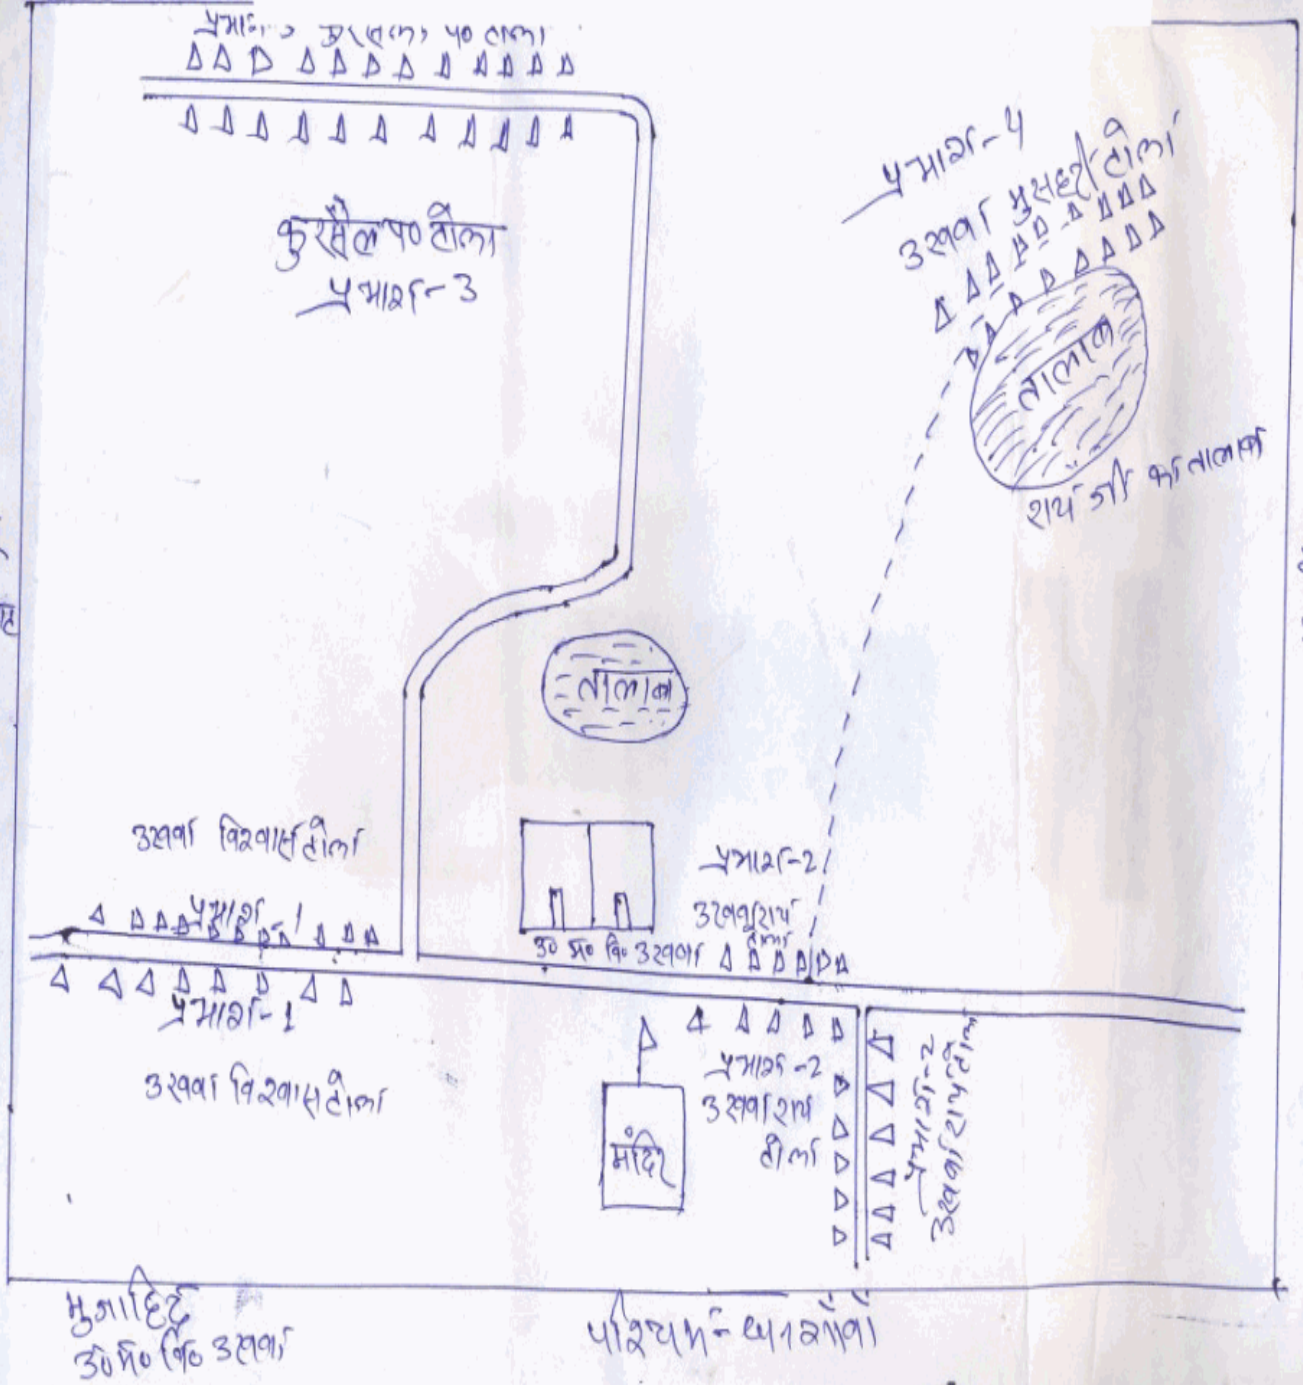 कुरसैल प० टोला
प्रभाग-3
प्रभाग-4
उखवा मुसहरी टोला
तालाब
राय जी का तालाब
तालाब
उखवा विश्वास टोला
प्रभाग-1
प्रभाग-2
उखवा राय
टोला
उ० म० वि० उखवा
प्रभाग-1
उखवा विश्वास टोला
मंदिर
प्रभाग-2
उखवा राय
टोला
प्रभाग-2
उखवा राय टोला
उ० म० वि० उखवा
पश्चिम-